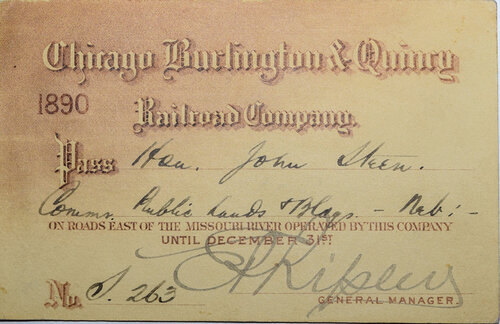 Chicago Burlington & Quincy
1890
Railroad Company.
Pass Hon. John Steen.
Commr Public Lands & Bldgs. - Neb; -
ON ROADS EAST OF THE MISSOURI RIVER OPERATED BY THIS COMPANY
UNTIL DECEMBER 31ST
E P Ripley
No. S. 263
GENERAL MANAGER.